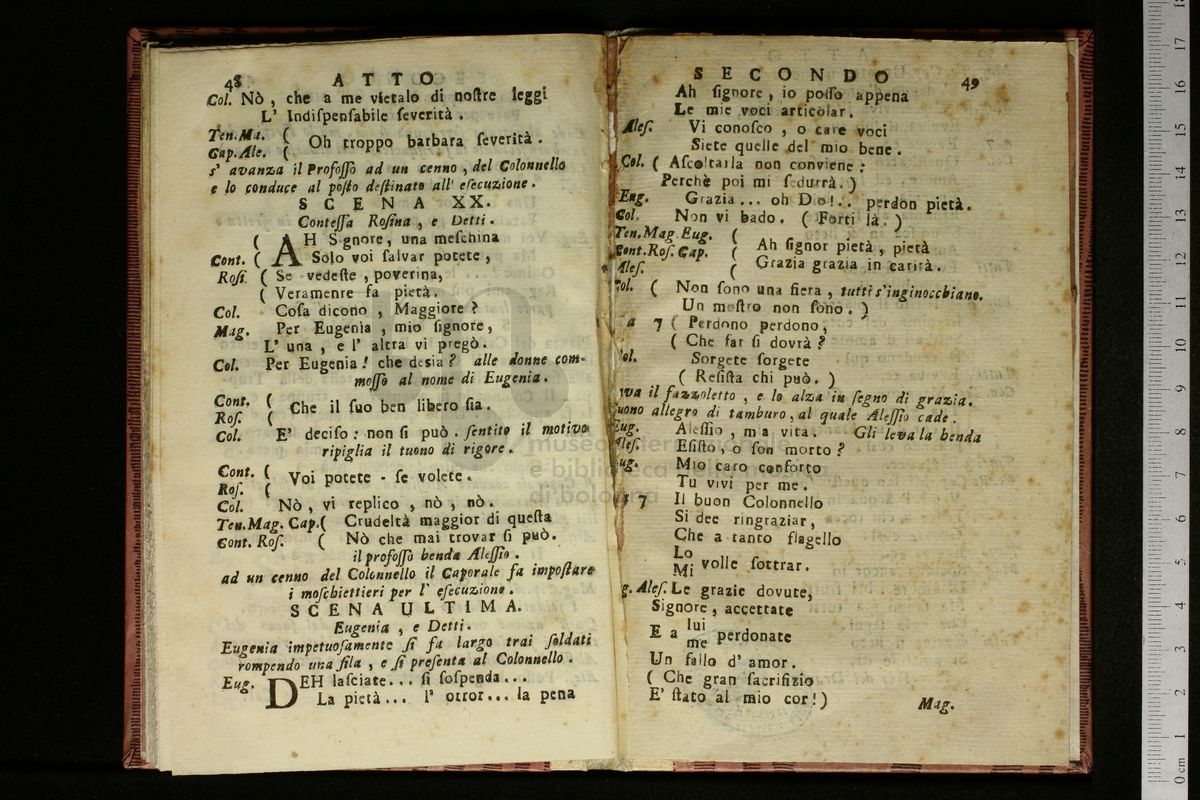 48 ATTO
Col. Nò, che a me vietalo di noſtre leggi
L' Indiſpenſabile ſeverità.
Ten. Ma. (
Cap. Ale. ( Oh troppo barbara ſeverità.
s' avanza il Profoſſo ad un cenno, del Colonnello
e lo conduce al poſto deſtinato all' eſecuzione.
SCENA XX.
Conteſſa Roſina, e Detti.
( AH Signore, una meſchina
Cont. ( Solo voi ſalvar potete,
Roſi. ( Se vedeſte, poverina,
( Veramenre fa pietà.
Col. Coſa dicono, Maggiore?
Mag. Per Eugenia, mio ſignore,
L' una, e l' altra vi pregò.
Col. Per Eugenia! che desia? alle donne com-
moſſo al nome di Eugenia.
Cont. (
Roſ. ( Che il ſuo ben libero ſia.
Col. E' deciſo: non ſi può. ſentito il motivo
ripiglia il tuono di rigore.
Cont. (
Roſ. ( Voi potete - ſe volete.
Col. Nò, vi replico, nò, nò.
Ten. Mag. Cap. ( Crudeltà maggior di queſta
Cont. Roſ. ( Nò che mai trovar ſi può.
il profoſſo benda Aleſſio.
ad un cenno del Colonnello il Caporale fa impoſtare
i moſchiettieri per l' eſecuzione.
SCENA ULTIMA.
Eugenia, e Detti.
Eugenia impetuoſamente ſi fa largo trai ſoldati
rompendo una fila, e ſi preſenta al Colonnello.
Eug. DEH laſciate... ſi ſoſpenda...
La pietà... l' orror... la pena
SECONDO 49
Ah ſignore, io poſſo appena
Le mie voci articolar.
Aleſ. Vi conoſco, o care voci
Siete quelle del mio bene.
Col. ( Aſcoltarla non conviene:
Perchè poi mi ſedurrà. )
Eug. Grazia... oh Dio!.. perdon pietà.
Col. Non vi bado. ( Forti là. )
Ten. Mag. Eug. (
Cont. Roſ. Cap. ( Ah ſignor pietà, pietà
Aleſ. ( Grazia grazia in carità.
Col. ( Non ſono una fiera, tutti s'inginocchiano.
Un moſtro non ſono. )
a 7 ( Perdono perdono,
( Che far ſi dovrà?
ol. Sorgete ſorgete
( Reſiſta chi può. )
va il fazzoletto, e lo alza in ſegno di grazia.
uono allegro di tamburo, al quale Aleſſio cade.
Eug. Aleſſio, mia vita. Gli leva la benda
Aleſ. Eſiſto, o ſon morto?
ug. Mio caro conforto
Tu vivi per me.
a 7 Il buon Colonnello
Si dee ringraziar,
Che a tanto flagello
Lo
Mi volle ſottrar.
g. Aleſ. Le grazie dovute,
Signore, accettate
E a lui
me perdonate
Un fallo d' amor.
( Che gran ſacrifizio
E' ſtato al mio cor!)
Mag.
museo internazionale
e biblioteca della musica
di bologna